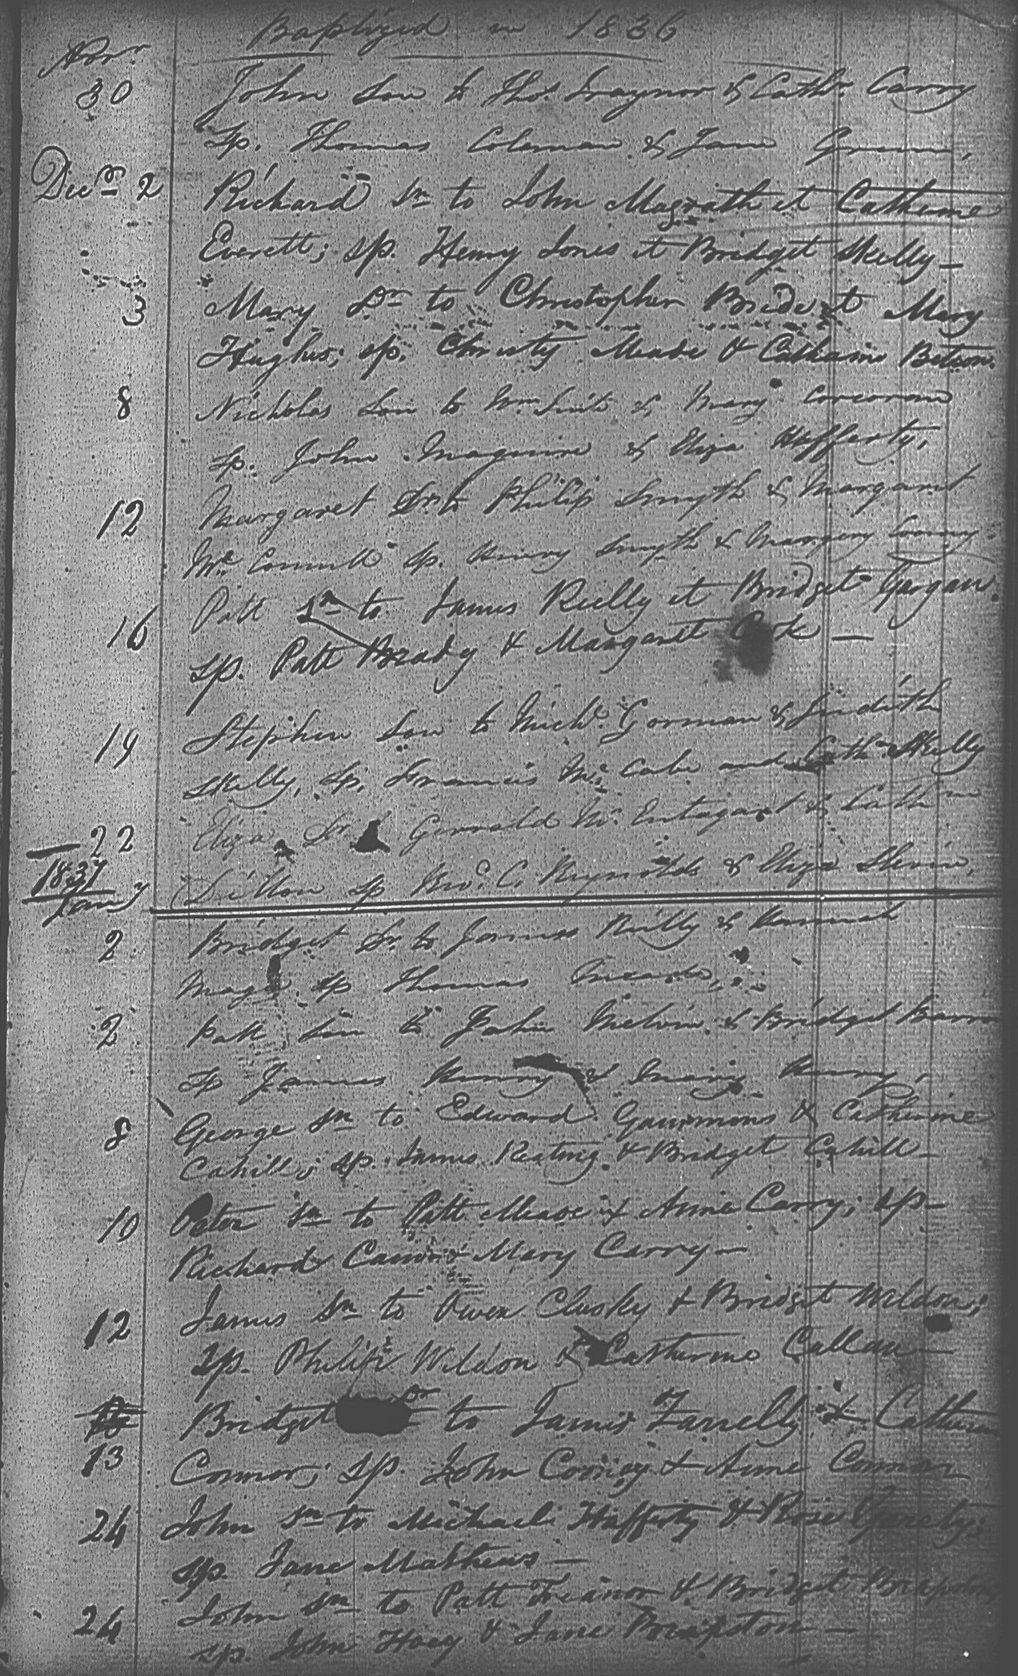 Baptized in 1836
Novr
30 John Son to Thos Traynor & Cathn Carry
Sp. Thomas Coleman & Jane
Decr 2 Richard Sn to John Magrath et Catherine
Everett; Sp. Henry Jones et Bridget Skelly
3 Mary Dr to Christopher Bride et Mary
Hughes; Sp. Christy Meade & Catharine
8 Nicholas Son to Wm & Mary Corcoran
Sp. John Maguire & Eliza Hafferty,
12 Margaret Dr to Philip Smyth & Margaret
Mc Sp. Henry Smyth & Margery
16 Patt Sn to James Reilly et Bridget Gargan.
Sp. Patt Brady & Margaret
19 Stephen Son to Michl Gorman & Judith
Skelly, Sp. Francis Mc Cabe and Cath Skelly
22 Eliza Dr Mc & Cath
Sp Reynolds & Eliza
1837
Jany
2 Bridget Dr to James Reilly &
Sp Thomas Meade,
2 Patt Son to John & Bridget
Sp James & Mary
8 George Sn to Edward & Catherine
Cahill; Sp. James Keating & Bridget Cahill
10 Peter Sn to Patt Mease & Anne Carry; Sp
Richard & Mary Carry
12 James Sn to Owen Clusky & Bridget Wildon;
Sp. Philip Wildon & Catherine Callan
13 Bridget Dr to James Farrelly & Catherine
Connor; Sp. John Cooney & Anne Connor
24 John Sn to Michael Hafferty & Rose
Sp. Jane Mathews
24 John Sn to Patt Treanor & Bridget
Sp. John Hoey & Jane